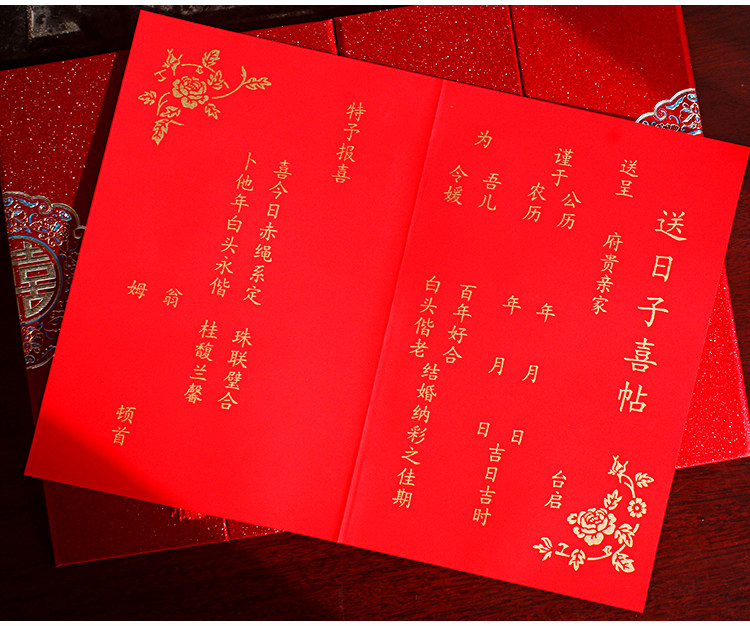 送日子喜帖
送呈 府贵亲家 台启
谨于 公历 年 月 日 吉日吉时
农历 年 月 日
为 吾儿 百年好合 结婚纳彩之佳期
令媛 白头偕老
特予报喜
喜今日赤绳系定 珠联璧合
卜他年白头永偕 桂馥兰馨
翁
姆 顿首
囍